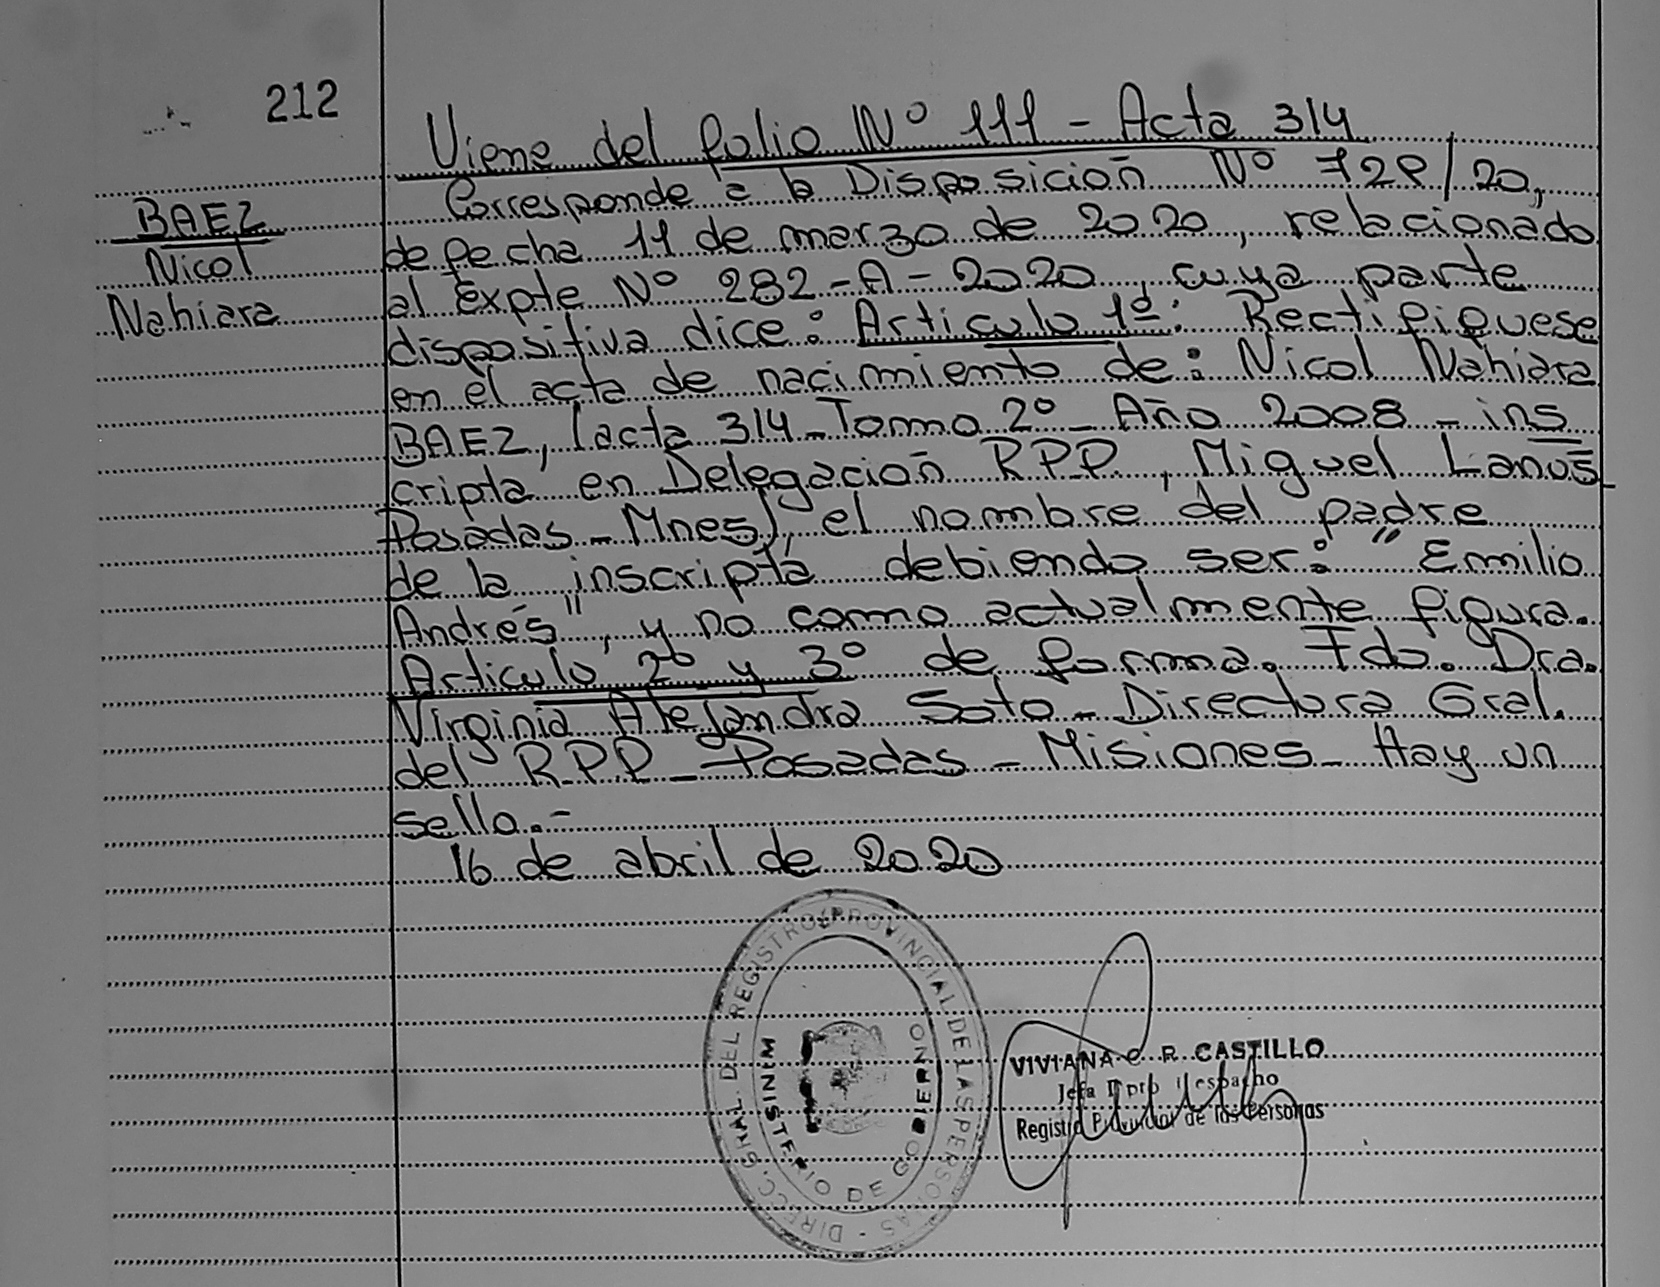 212
Viene del folio Nº 111 - Acta 314
BAEZ
Nicol
Nahiara
Corresponde a la Disposición Nº 728/20,
de fecha 11 de marzo de 2020, relacionado
al Expte Nº 282-A-2020, cuya parte
dispositiva dice: Articulo 1º: Rectifiquese
en el acta de nacimiento de: Nicol Nahiara
BAEZ, (acta 314-Tomo 2º-Año 2008-ins
cripta en Delegación RPP, Miguel Lanús
Posadas-Mnes), el nombre del padre
de la inscripta debiendo ser: "Emilio
Andrés", y no como actualmente figura.
Articulo 2º y 3º de forma. Fdo. Dra.
Virginia Alejandra Soto-Directora Gral.
del RPP-Posadas-Misiones-Hay un
sello.-
16 de abril de 2020
DIRECC. GRAL. DEL REGISTRO PROVINCIAL DE LAS PERSONAS
MINISTERIO DE GOBIERNO
VIVIANA C. R. CASTILLO
Jefa Dpto Despacho
Registro Provincial de las Personas